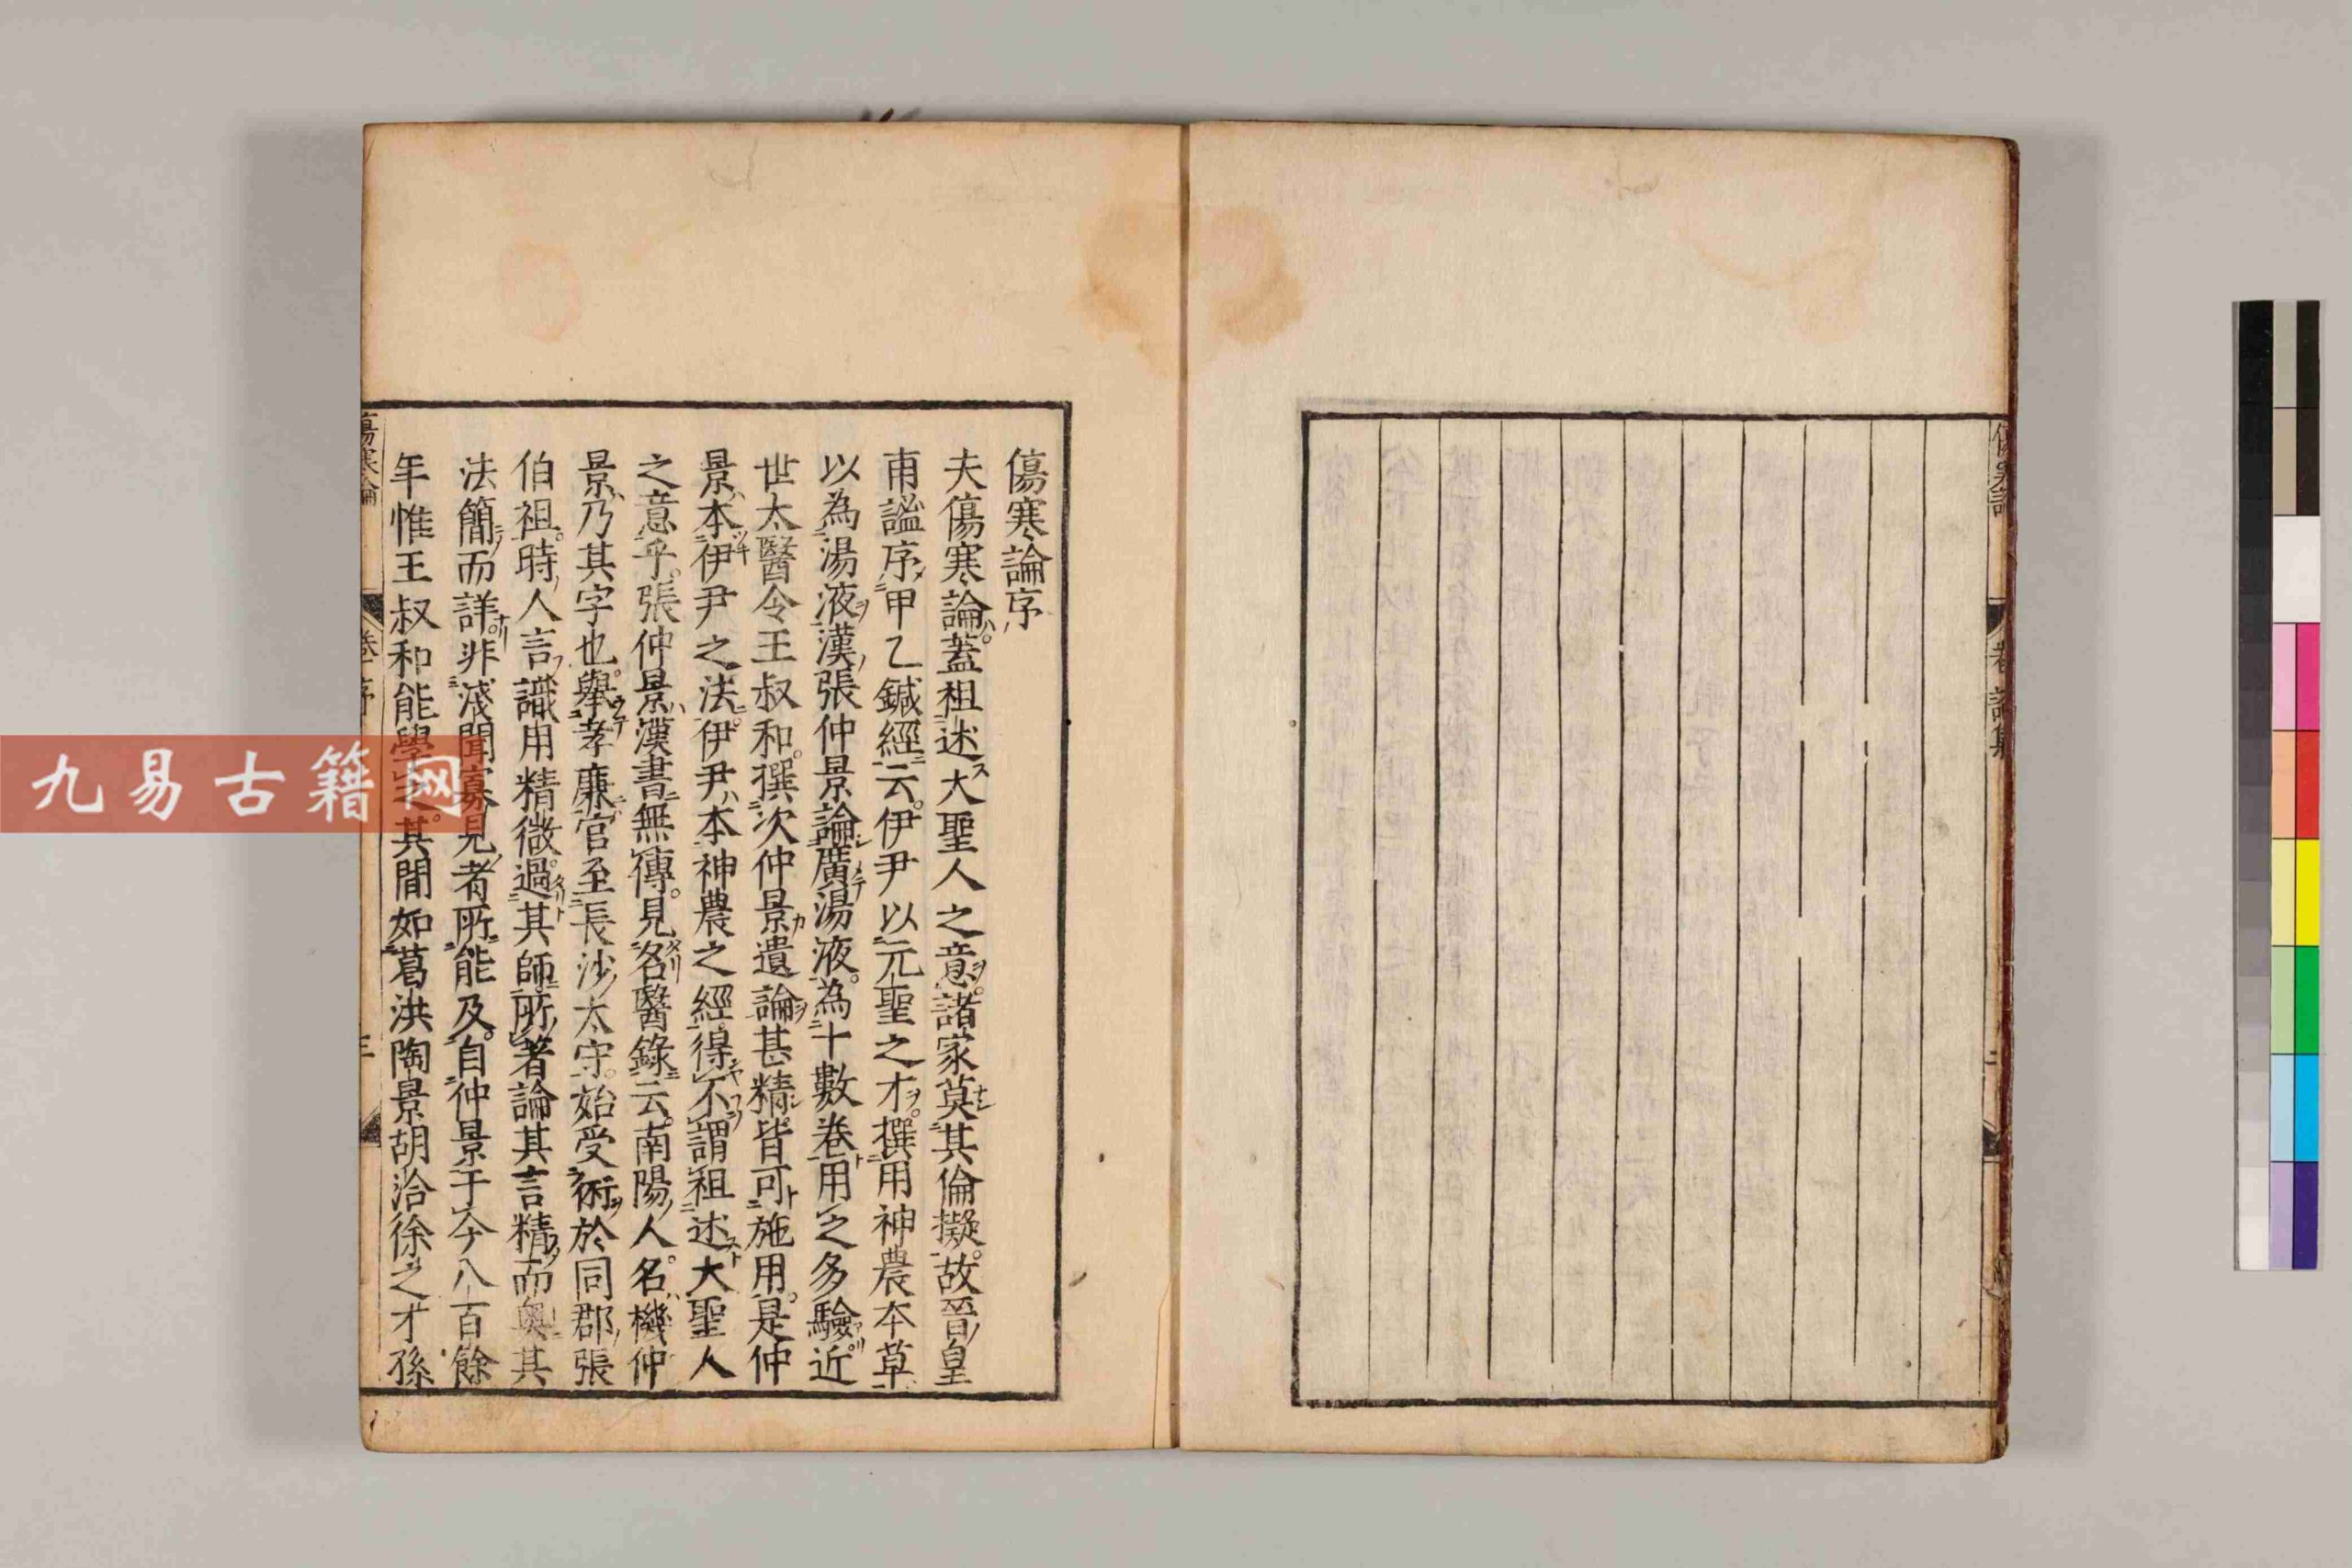 傷寒論序
夫傷寒論蓋祖述大聖人之意諸家莫其倫擬故晉皇
甫謐序甲乙鍼經云伊尹以元聖之才撰用神農本草
以為湯液漢張仲景論廣湯液為十數卷用之多驗近
世太醫令王叔和撰次仲景遺論甚精皆可施用是仲
景本伊尹之法伊尹本神農之經得不謂祖述大聖人
之意乎張仲景漢書無傳見名醫錄云南陽人名機仲
景乃其字也舉孝廉官至長沙太守始受術於同郡張
伯祖時人言識用精微過其師所著論其言精而奧其
法簡而詳非淺聞寡見者所能及自仲景于今八百餘
年惟王叔和能學之其間如葛洪陶景胡洽徐之才孫
傷寒論 卷一序 三
九易古籍网